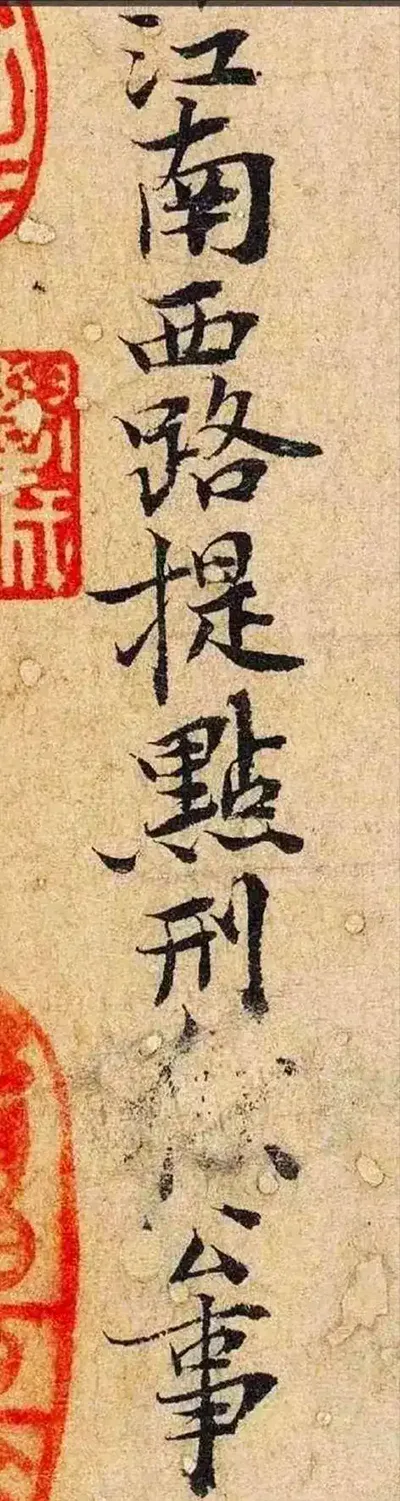 江南西路提點刑公事